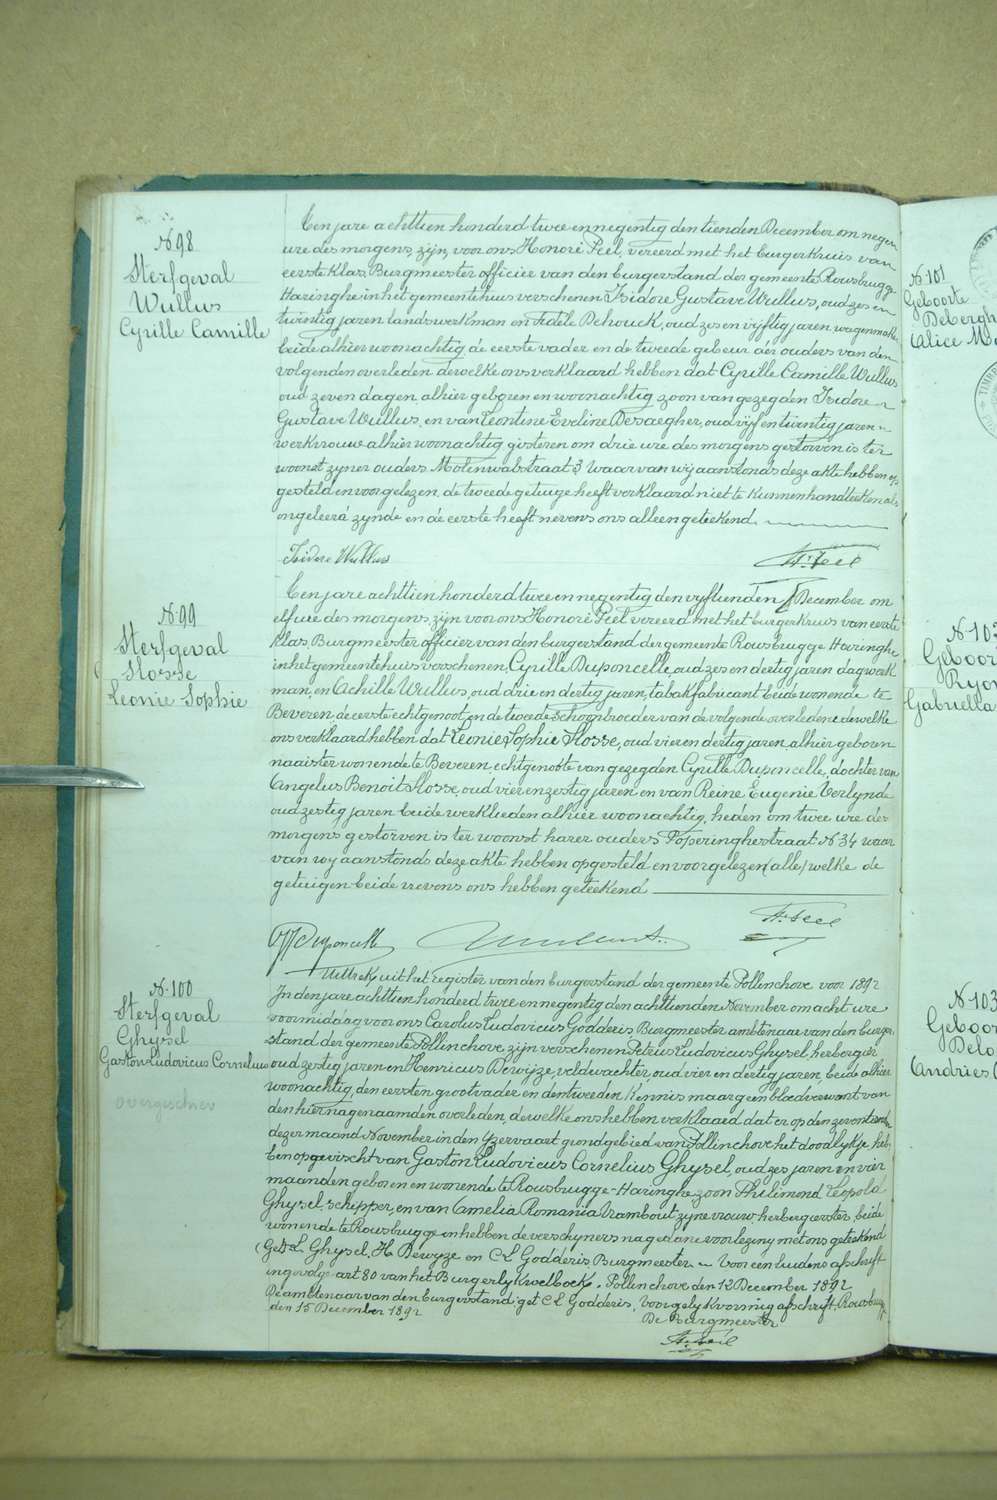 N 98
Sterfgeval
Wullus
Cyrille Camille
Een jare achttien honderd twee en negentig den tienden December om negen
ure des morgens, zijn, voor ons Honoré Peel, vereerd met het burgerkruis van
eerste klas, Burgmeester officier van den burgerstand der gemeente Rousbrugge
Haringhe in het gemeentehuis verschenen Isidore Gustave Wullus, oud zes en
twintig jaren landswerkman en Fidèle Dehouck, oud zes en vijftig jaren wagenmaker
beide alhier woonachtig, de eerste vader en de tweede gebeur der ouders van den
volgenden overleden dewelke ons verklaard hebben dat Cyrille Camille Wullus
oud zeven dagen, alhier geboren en woonachtig zoon van gezegden Isidore
Gustave Wullus, en van Leontine Eveline Desaegher, oud vijf en twintig jaren
werkvrouw alhier woonachtig, gisteren om drie ure des morgens gestorven is ter
woonst zyner ouders Molenwalstraat 3 waarvan wij aanstonds deze akte hebben op
gesteld en voorgelezen, de tweede getuige heeft verklaard niet te kunnen handteeken als
ongeleerd zynde en de eerste heeft nevens ons alleen geteekend.
Isidore Wullus
H. Peel
N 99
Sterfgeval
Slosse
Leonie Sophie
Een jare achttien honderd twee en negentig den vyftienden December om
elf ure des morgens zijn voor ons Honoré Peel vereerd met het burgerkruis van eerste
klas, Burgmeester officier van den burgerstand der gemeente Rousbrugge Haringhe
in het gemeentehuis verschenen, Cyrille Duponcelle, oud zes en dertig jaren dagwerk
man, en Achille Wullus, oud drie en dertig jaren, tabakfabricant beide wonende te
Beveren, de eerste echtgenoot, en de tweede schoonbroeder van de volgende overledene dewelke
ons verklaard hebben dat Leonie Sophie Slosse, oud vier en dertig jaren, alhier geboren
naaister wonende te Beveren, echtgenoote van gezegden Cyrille Duponcelle, dochter van
Angelus Benoit Slosse, oud vier en zestig jaren en van Reine Eugenie Verlynde
oud zestig jaren beide werklieden alhier woonachtig, heden om twee ure des
morgens gestorven is ter woonst harer ouders Poperinghestraat N 34 waar
van wy aanstonds deze akte hebben opgesteld en voorgelezen (alle) welke de
getuigen beide nevens ons hebben geteekend
Duponcelle
H. Peel
N 100
Sterfgeval
Ghysel
Gaston Ludovicus Cornelius
overgeschrev
Uittreksel uit het register van den burgerstand der gemeente Pollinchove voor 1892
In den jare achttien honderd twee en negentig den achttienden November om acht ure
voormiddag voor ons Carolus Ludovicus Godderis Burgmeester ambtenaar van den burger
stand der gemeente Pollinchove zijn verschenen Petrus Ludovicus Ghysel, herbergier
oud zestig jaren en Henricus Dewijze, veldwachter, oud vier en dertig jaren, beide alhier
woonachtig, den eersten grootvader en den tweeden kennis maar geen bloedverwant van
den hiernagenaamden overleden, dewelke ons hebben verklaard dat er op den zeventienden
dezer maand November in den Yzervaart grondgebied van Pollinchove het doodlykje heb-
ben opgevischt van Gaston Ludovicus Cornelius Ghysel, oud zes jaren en vier
maanden geboren en wonende te Rousbrugge-Haringhe zoon Philimond Leopold
Ghysel, schipper, en van Amelia Romania Vrambout zyne vrouw herbergierster, beide
wonende te Rousbrugge en hebben de verschyners na gedane voorlezing met ons geteekend
(Get) L Ghysel, H. Dewyze en C L Godderis Burgmeester. Voor een luidens afschrift
ingevolge art 80 van het Burgerlyk wetboek. Pollinchove den 12 December 1892
De ambtenaar van den burgerstand get C L Godderis. Voor gelykvormig afschrift, Rousbrugge
den 15 December 1892
De Burgmeester
H. Peel
N 101
Geboorte
Debergh
Alice M
TIMBR
N 102
Geboor
Ryon
Gabriella
N 103
Geboor
Delo
Andries C